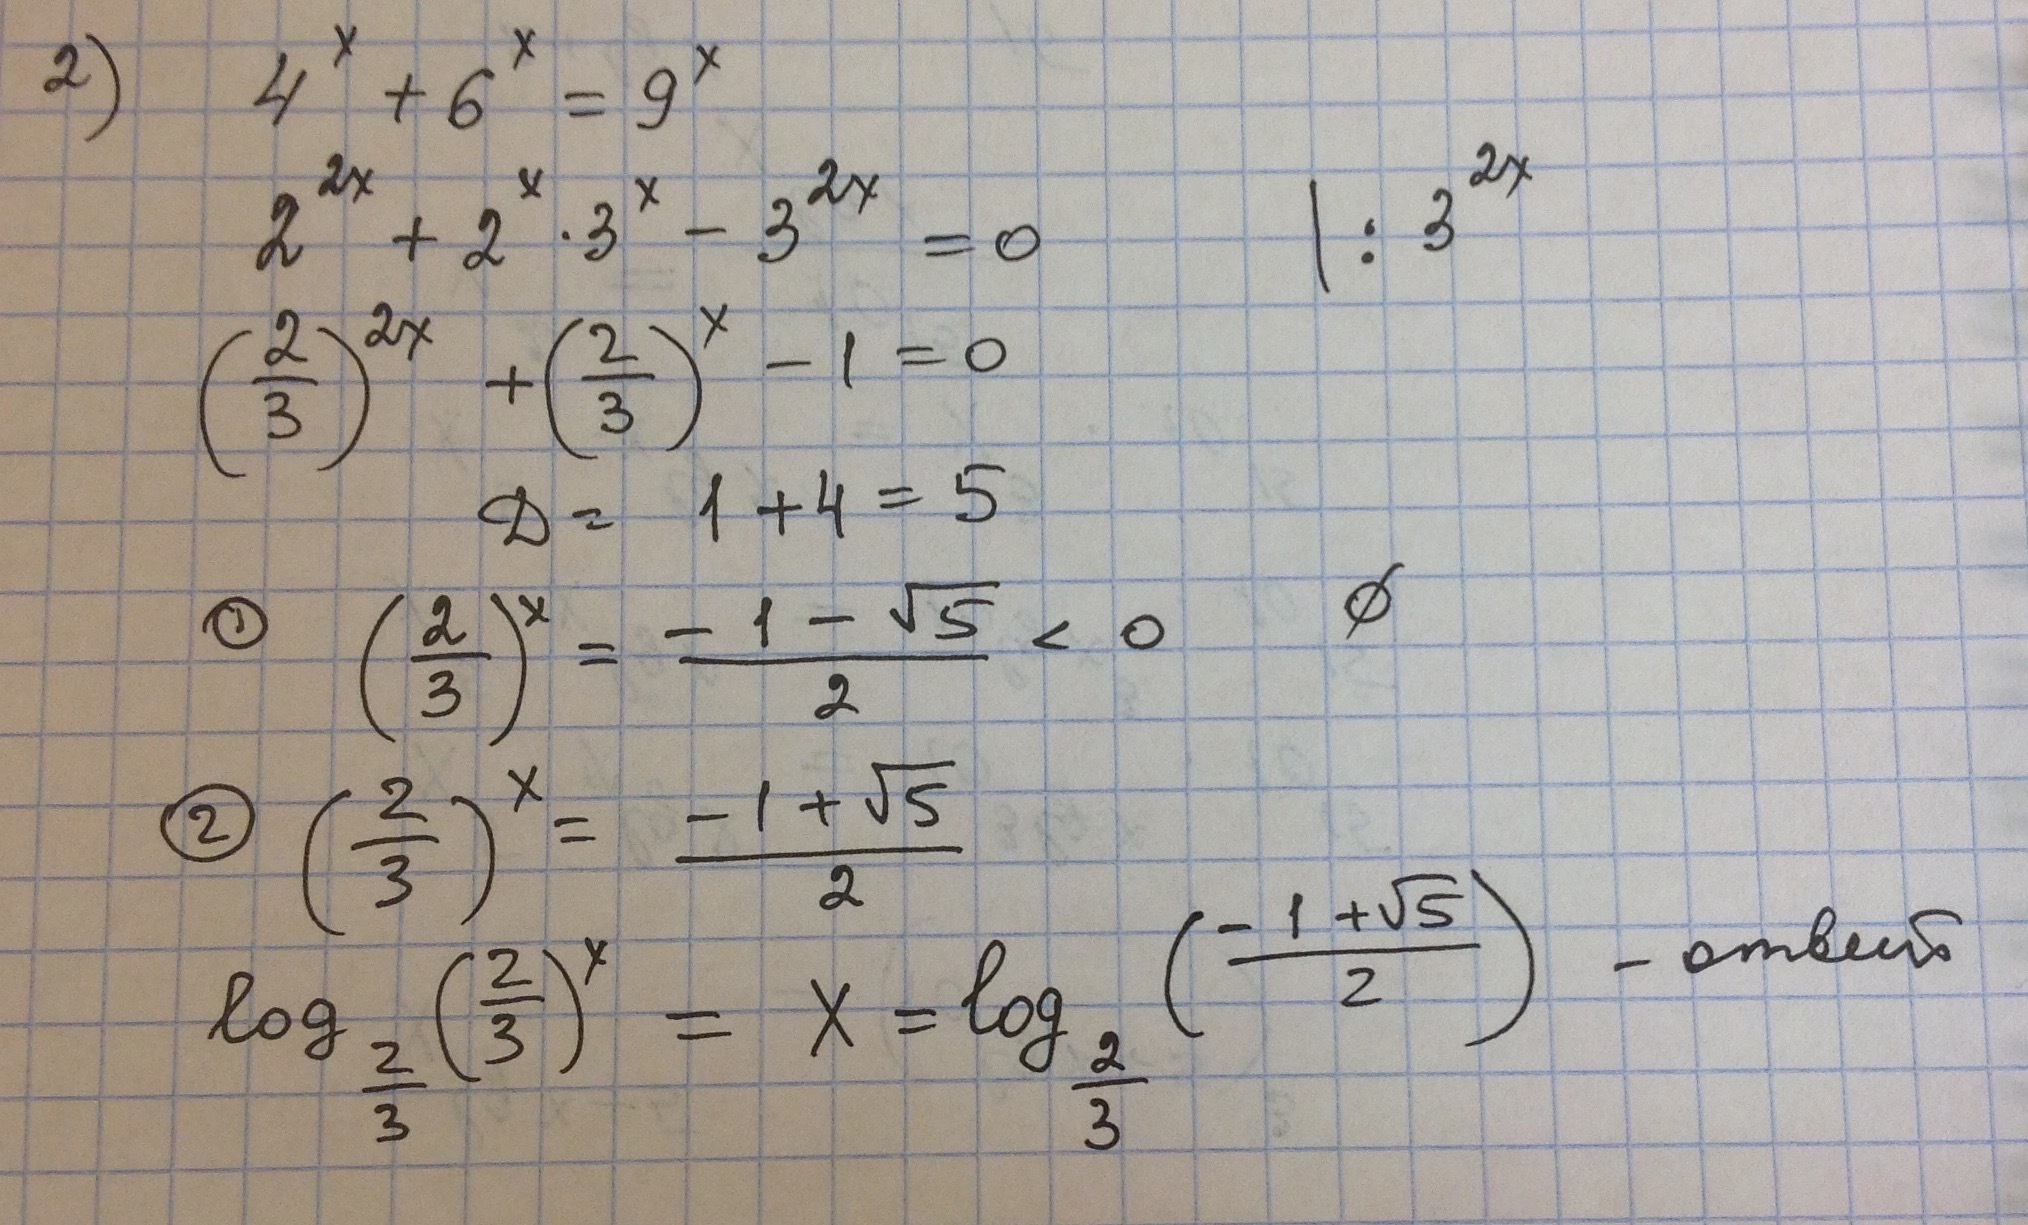 2) 4^x + 6^x = 9^x
2^{2x} + 2^x · 3^x - 3^{2x} = 0 | : 3^{2x}
(2/3)^{2x} + (2/3)^x - 1 = 0
D = 1 + 4 = 5
① (2/3)^x = (-1 - √5)/2 < 0 ∅
② (2/3)^x = (-1 + √5)/2
log_{2/3} (2/3)^x = x = log_{2/3} ((-1 + √5)/2) - ответ